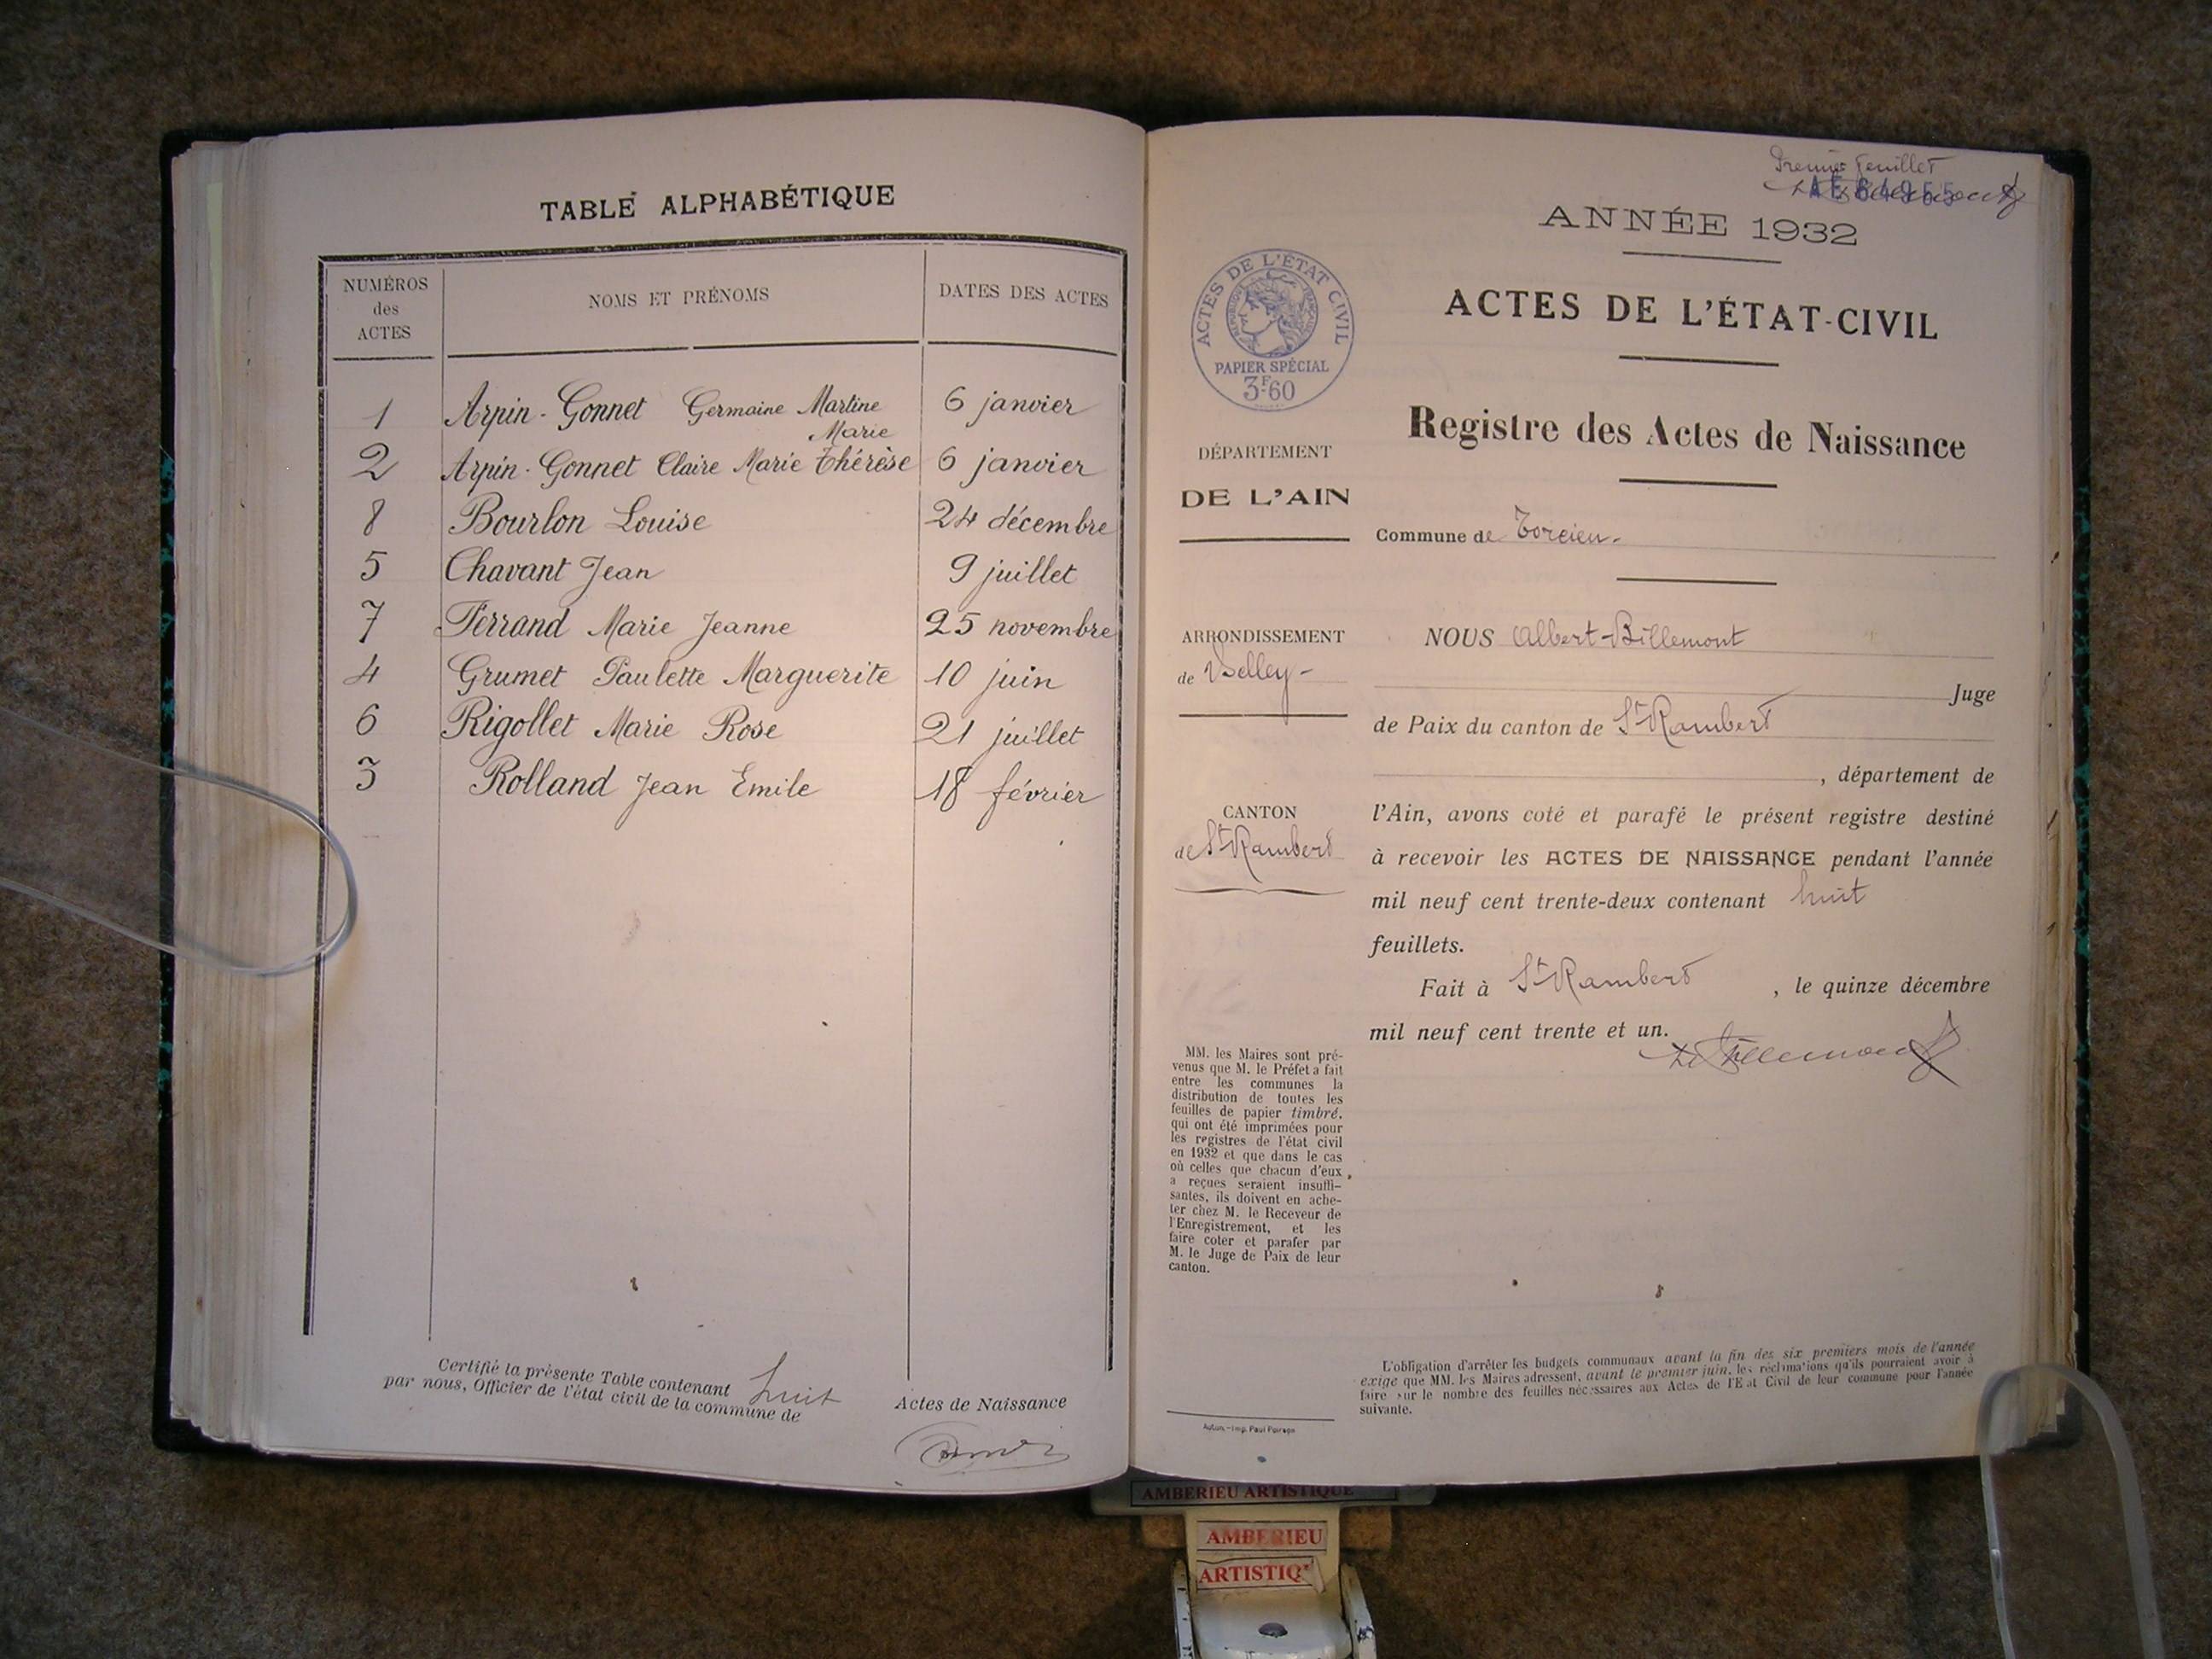 TABLE ALPHABÉTIQUE
NUMÉROS
des
ACTES
NOMS ET PRÉNOMS
DATES DES ACTES
1 Arpin-Gonnet Germaine Martine 6 janvier
Marie
2 Arpin-Gonnet Claire Marie Thérèse 6 janvier
8 Bourlon Louise 24 décembre
5 Chavant Jean 9 juillet
7 Ferrand Marie Jeanne 25 novembre
4 Grumet Paulette Marguerite 10 juin
6 Rigollet Marie Rose 21 juillet
3 Rolland Jean Emile 18 février
Certifié la présente Table contenant huit Actes de Naissance
par nous, Officier de l'état civil de la commune de
Premier feuillet
ANNÉE 1932
ACTES DE L'ÉTAT-CIVIL
Registre des Actes de Naissance
ACTES DE L'ÉTAT CIVIL
RÉPUBLIQUE FRANÇAISE
PAPIER SPÉCIAL
3F60
DÉPARTEMENT
DE L'AIN
Commune de Torcieu.
ARRONDISSEMENT
de Belley-
CANTON
de St Rambert
NOUS Albert-Billemont
Juge
de Paix du canton de St Rambert
, département de
l'Ain, avons coté et parafé le présent registre destiné
à recevoir les ACTES DE NAISSANCE pendant l'année
mil neuf cent trente-deux contenant huit
feuillets.
Fait à St Rambert , le quinze décembre
mil neuf cent trente et un.
MM. les Maires sont pré-
venus que M. le Préfet a fait
entre les communes la
distribution de toutes les
feuilles de papier timbré,
qui ont été imprimées pour
les registres de l'état civil
en 1932 et que dans le cas
où celles que chacun d'eux
a reçues seraient insuffi-
santes, ils doivent en ache-
ter chez M. le Receveur de
l'Enregistrement, et les
faire coter et parafer par
M. le Juge de Paix de leur
canton.
L'obligation d'arrêter les budgets communaux avant la fin des six premiers mois de l'année
exige que MM. les Maires adressent, avant le premier juin, les réclamations qu'ils pourraient avoir à
faire sur le nombre des feuilles nécessaires aux Actes de l'Etat Civil de leur commune pour l'année
suivante.
Autun.-Imp. Paul Poirson
AMBERIEU ARTISTIQUE
AMBERIEU
ARTISTIQ